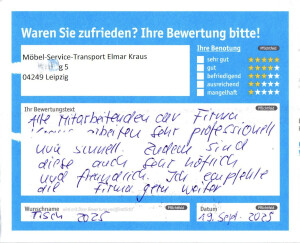 Waren Sie zufrieden? Ihre Bewertung bitte!
Möbel-Service-Transport Elmar Kraus
g 5
04249 Leipzig
Ihre Benotung
sehr gut
gut
befriedigend
ausreichend
mangelhaft
Ihr Bewertungstext
Alle Mitarbeitenden der Firma
arbeiten sehr professionell
und schnell. Zudem sind
diese auch sehr höflich
und freundlich. Ich empfehle
die Firma gern weiter
Wunschname
Datum
Tisch 2025
19. Sept. 2025